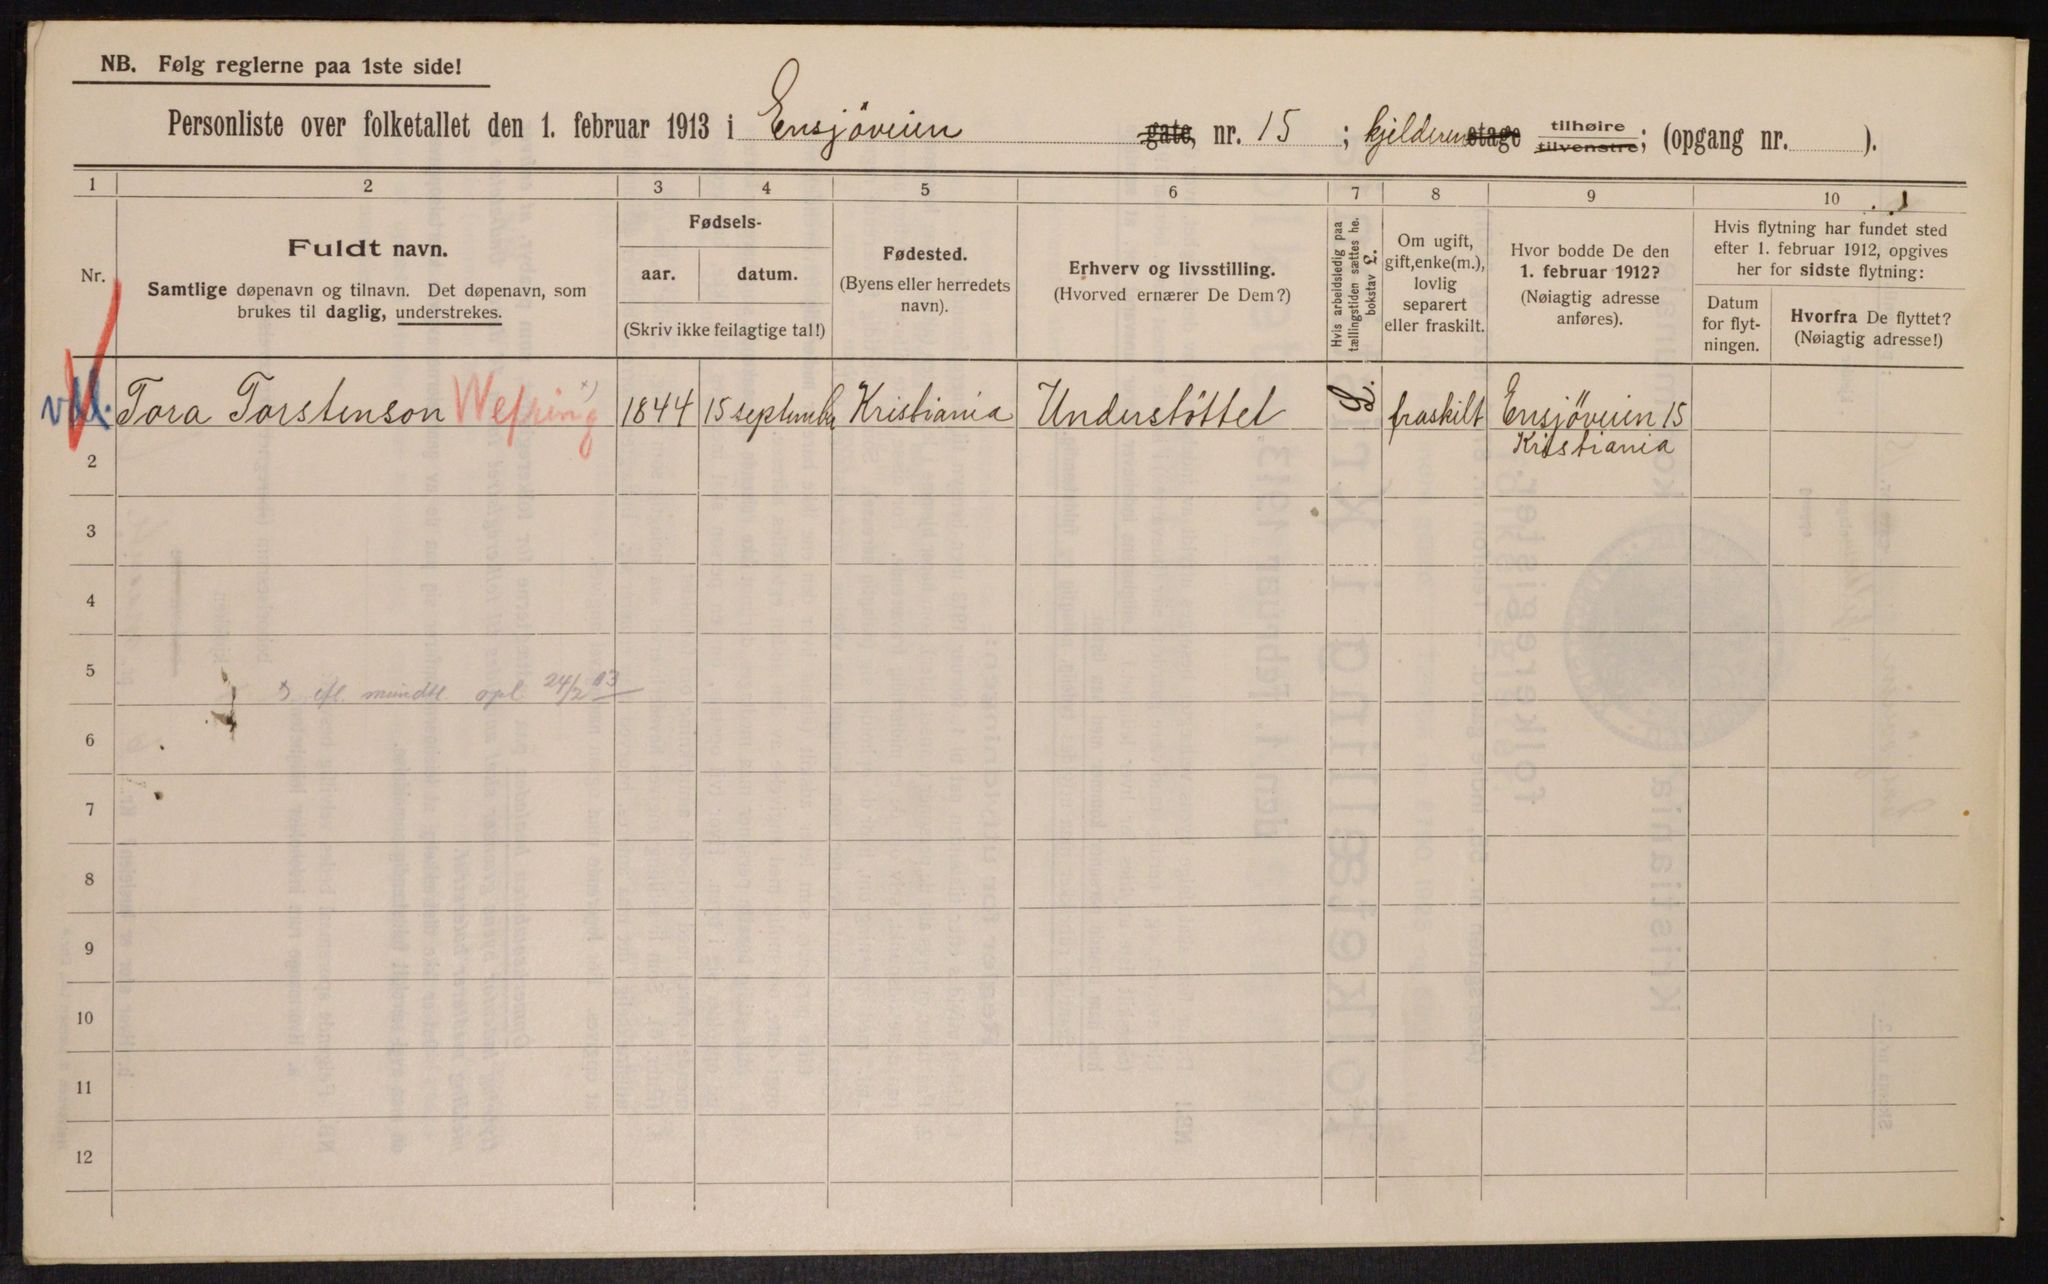 NB. Følg reglerne paa 1ste side!
Personliste over folketallet den 1. februar 1913 i Ensjöveien gate, nr. 15 ; kjelderen etage tilhøire tilvenstre; (opgang nr. ).
1 2 3 4 5 6 7 8 9 10
Nr.
Fuldt navn.
Samtlige døpenavn og tilnavn. Det døpenavn, som
brukes til daglig, understrekes.
Fødsels-
aar. datum.
(Skriv ikke feilagtige tal!)
Fødested.
(Byens eller herredets
navn).
Erhverv og livsstilling.
(Hvorved ernærer De Dem?)
Hvis arbeidsledig paa
tællingstiden sættes he.
bokstav L.
Om ugift,
gift, enke(m.),
lovlig
separert
eller fraskilt.
Hvor bodde De den
1. februar 1912?
(Nøiagtig adresse
anføres).
Hvis flytning har fundet sted
efter 1. februar 1912, opgives
her for sidste flytning:
Datum
for flyt-
ningen.
Hvorfra De flyttet?
(Nøiagtig adresse!)
Tora Torstenson Wefring x) 1844 15 september Kristiania Understöttet L. fraskilt Ensjöveien 15
Kristiania
2
3
4
5
x) efl. mundtl opl 24/2 13
6
7
8
9
10
11
12